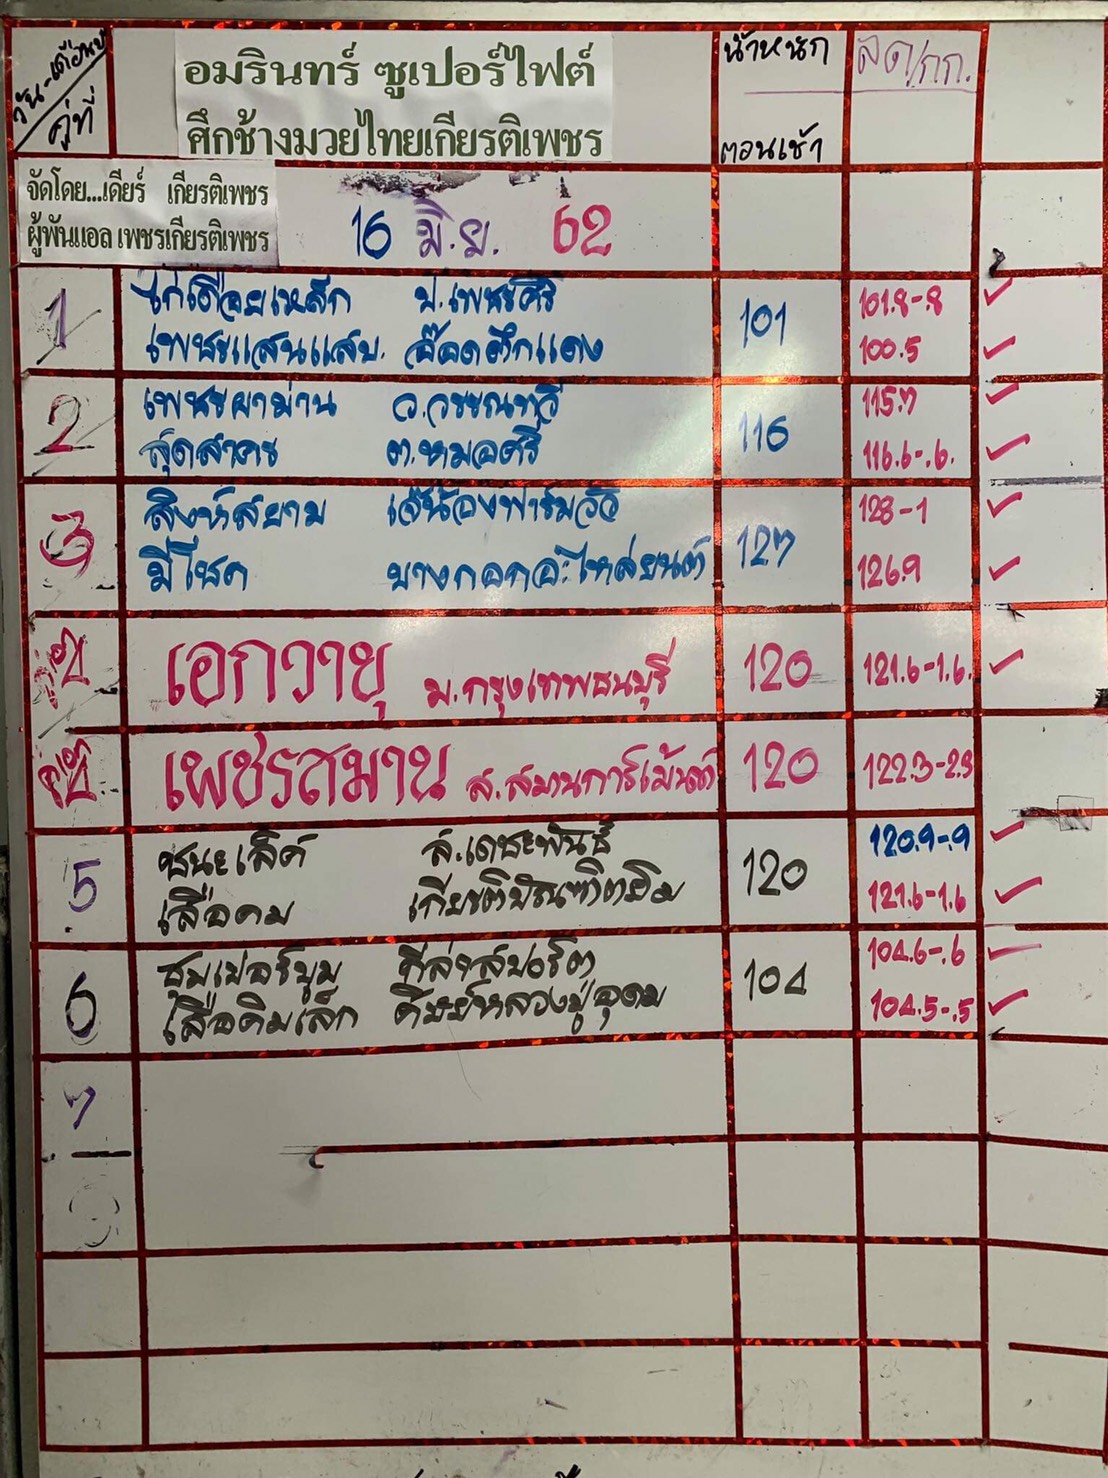 วัน-เดือน-ปี
คู่ที่
อมรินทร์ ซูเปอร์ไฟต์
ศึกช้างมวยไทยเกียรติเพชร
น้ำหนัก
ตอนเช้า
ลด/กก.
จัดโดย...เดียร์ เกียรติเพชร
ผู้พันแอล เพชรเกียรติเพชร
16 มิ.ย. 62
1
ไก่เดือยเหล็ก ป.เพชรศิริ
101
101.8-.8
เพชรแสนแสบ อ๊อดตึกแดง
100.5
2
เพชรผาม่าน ว.วรรณทวี
116
115.7
สุดสาคร ต.หมอศรี
116.6-.6.
3
สิงห์สยาม
127
128-1
มีโชค บางกอกอะไหล่ยนต์
126.9
คู่เอก เอกวายุ ม.กรุงเทพธนบุรี
120
121.6-1.6.
คู่เอก เพชรสมาน ส.สมานการ์เม้นต์
120
122.3-2.3
5
ชนะเลิศ ส.เดชะพันธ์
120
120.9-.9
เสือคม
121.6-1.6
6
ซุปเปอร์บูม
104
104.6-.6
เสือคิมเล็ก ศิษย์หลวงปู่อุดม
104.5-.5
7